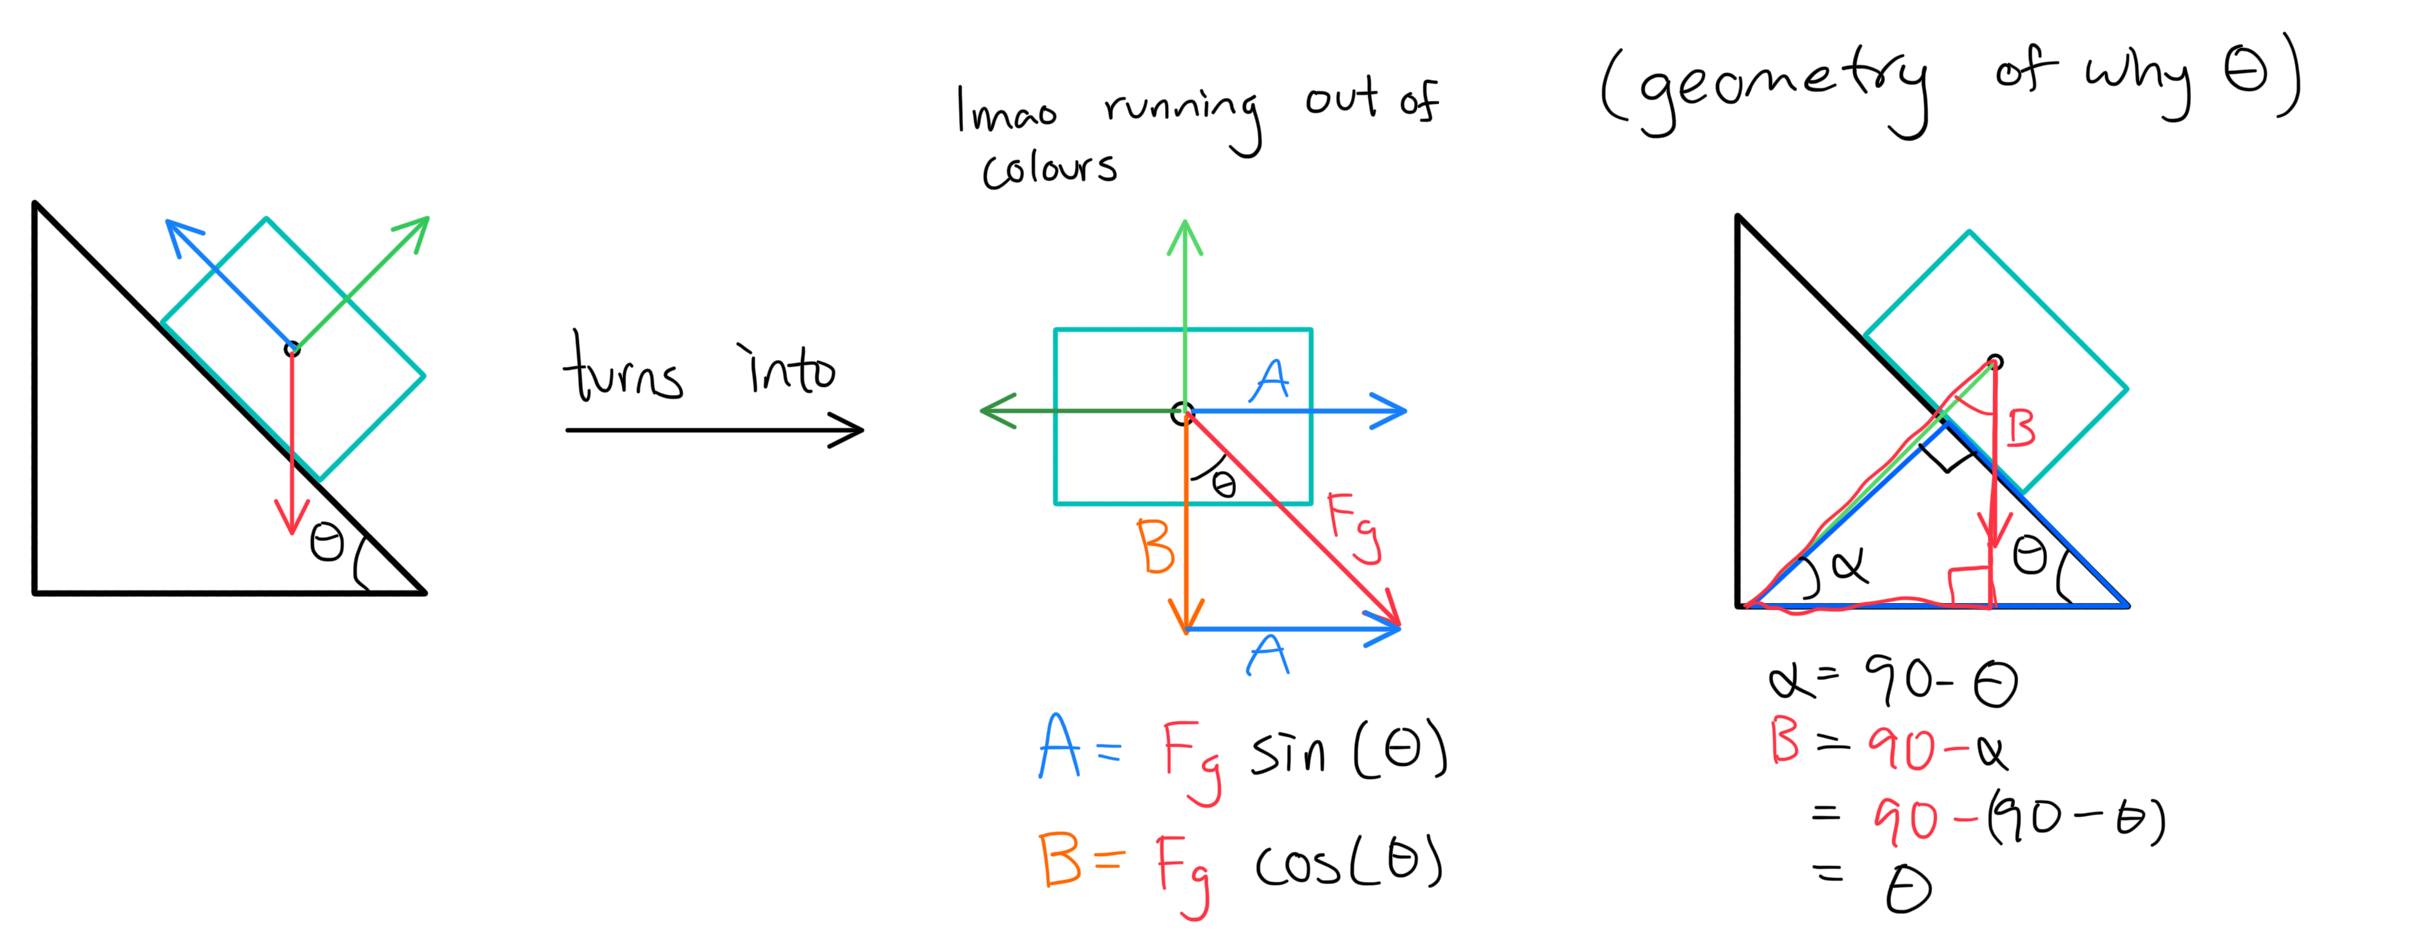 θ
turns into
lmao running out of
colours
A
θ
B
Fg
A
A = Fg sin(θ)
B = Fg cos(θ)
(geometry of why θ)
B
α
θ
α = 90 - θ
B = 90 - α
= 90 - (90 - θ)
= θ